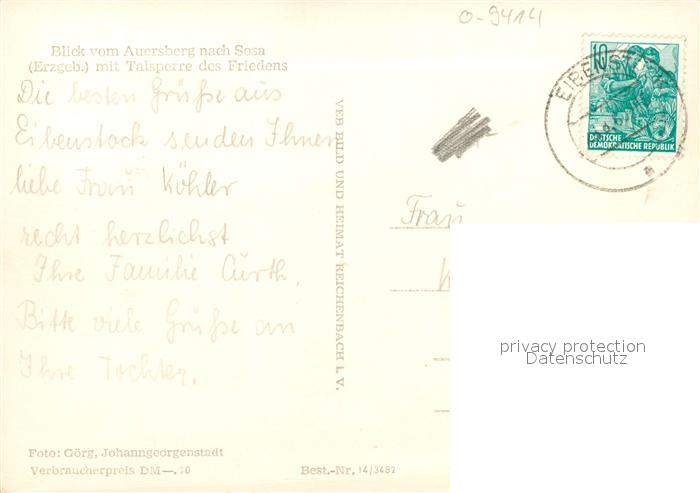 O-9414
Blick vom Auersberg nach Sosa
(Erzgeb.) mit Talsperre des Friedens
Die besten Grüße aus
Eibenstock senden Ihnen
liebe Frau Köhler
recht herzlichst
Ihre Familie Curth.
Bitte viele Grüße an
Ihre Tochter.
VEB BILD UND HEIMAT REICHENBACH I. V.
10
DEUTSCHE
DEMOKRATISCHE REPUBLIK
Frau
privacy protection
Datenschutz
Foto: Görg, Johanngeorgenstadt
Verbraucherpreis DM—.20
Best.-Nr. 14/3482